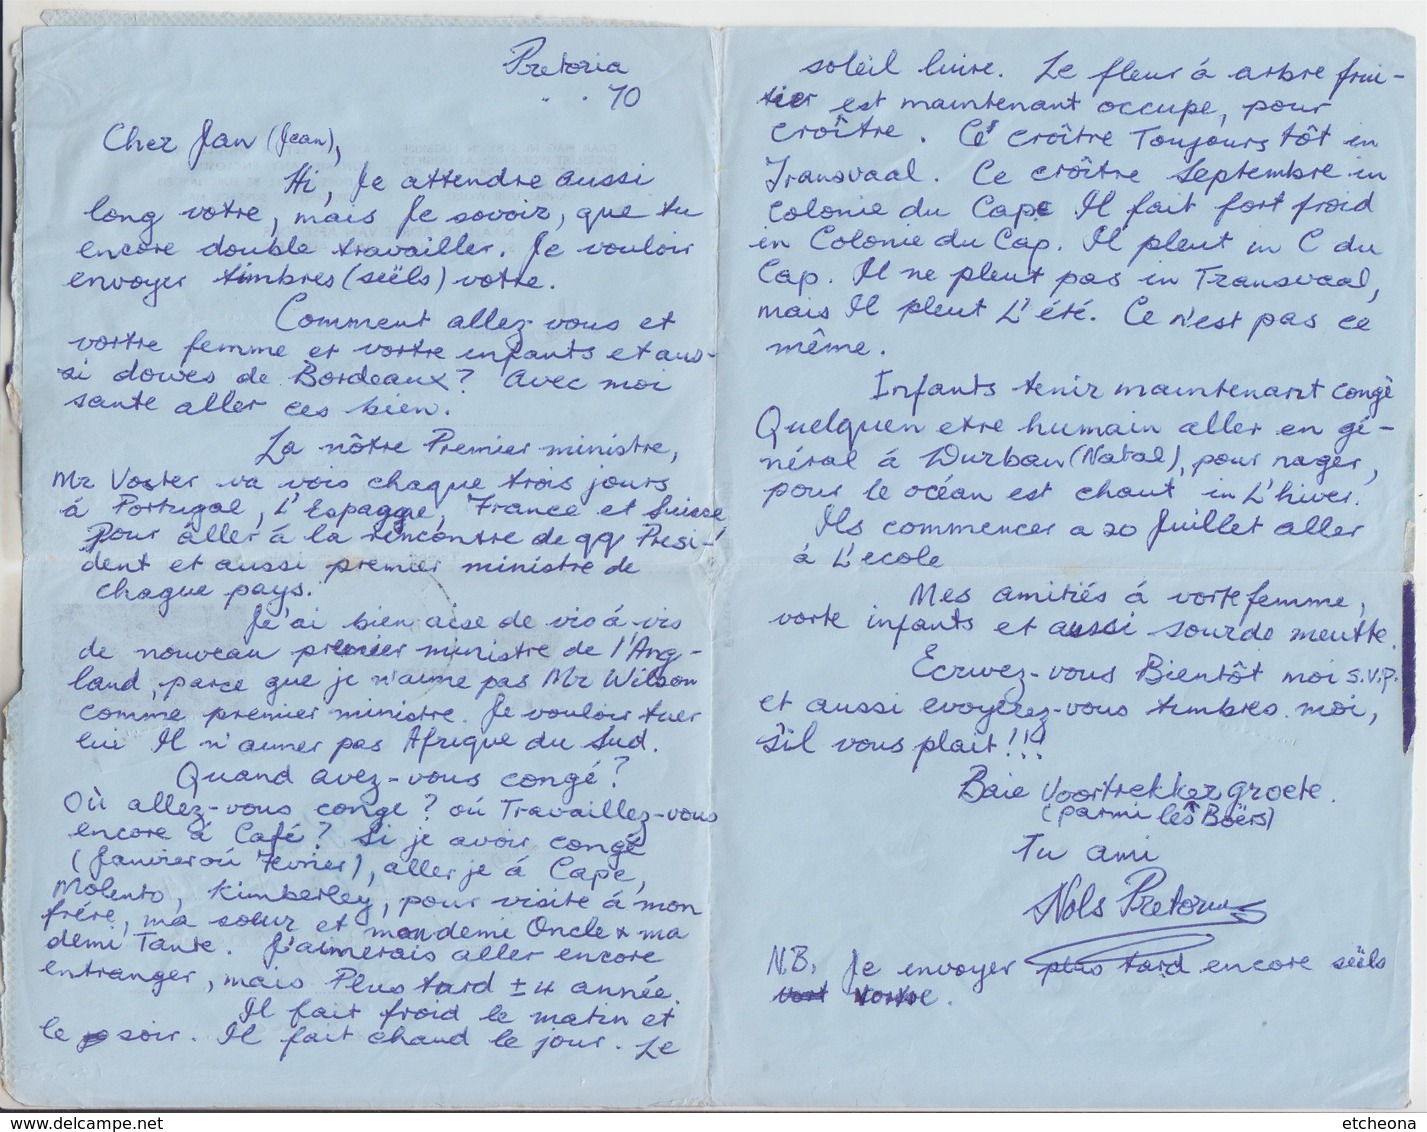 Pretoria
" . 70
Cher Jan (Jean),
Hi, Je attendre aussi
long votre, mais Je savoir, que tu
encore double travailler. Je vouloir
envoyer timbres (seëls) votre.
Comment allez-vous et
vortre femme et vortre infants et aus-
si dowes de Bordeaux? Avec moi
sante aller ces bien.
La nôtre Premier ministre,
Mr Voster va vois chaque trois jours
á Portugal, L'Espagge, France et Suisse
Pour âller á la rencontre de qq Presi-
dent et aussi premier ministre de
chaque pays.
Je'ai bien aise de vis á vis
de nouveau premier ministre de l'Ang-
land, parce que je n'aime pas Mr Wilson
comme premier ministre. Je vouloir tuer
lui Il n'aimer pas Afrique du Sud.
Quand avez-vous congé?
Où allez-vous conge? où Travaillez-vous
encore á Café? Si je avoir congé
(Janvier oú Fevrier), aller je á Cape,
Molento, Kimberley, pour visite á mon
frére, ma soeur et mon demi Oncle + ma
demi Tante. J'aimerais aller encore
entranger, mais Plus tard ± 4 année.
Il fait froid le matin et
le soir. Il fait chaud le jour. Le
soleil luire. Le fleur á arbre frui-
tier est maintenant occupe, pour
croître. Ce croître Toujours tôt in
Transvaal. Ce croître Septembre in
Colonie du Cap. Il fait fort froid
in Colonie du Cap. Il pleut in C du
Cap. Il ne pleut pas in Transvaal,
mais Il pleut L'été. Ce n'est pas ce
même.
Infants tenir maintenant congé
Quelquen etre humain aller en gé-
néral á Durban (Natal), pour nager,
pour le océan est chaut in L'hiver.
Ils commencer a 20 Juillet aller
á L'ecole
Mes amitiés á vorte femme,
vorte infants et aussi sourde meutte.
Ecrivez-vous Bientôt moi S.V.P.
et aussi evoyerez-vous timbres moi,
s'il vous plait!!!
Baie Voortrekkergroete.
(parmi les Boërs)
Tu ami
Nols Pretorius
N.B. Je envoyer plus tard encore seëls
vortre.
etcheona